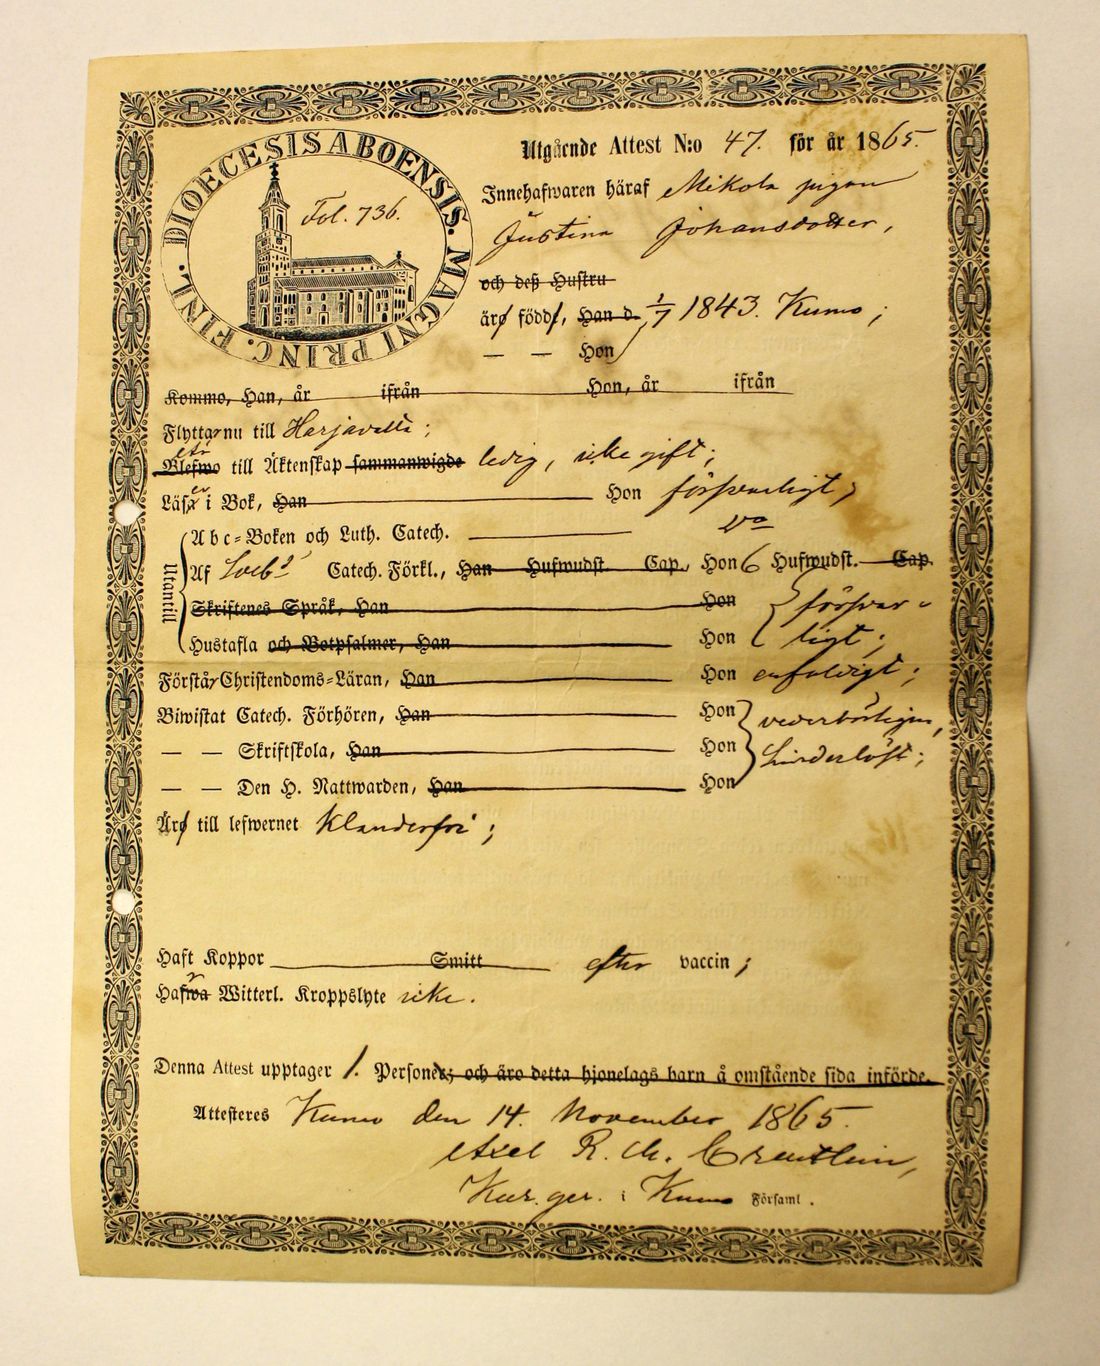 DIOECESIS ABOENSIS. MAGNI PRINC. FINL.
Fol. 736.
Utgående Attest N:o 47. för år 1865.
Innehafwaren häraf Mikola pigan
Justina Johansdotter,
och deß Hustru
äro född, Han d. 1/7 1843. Kumo;
— — Hon
Kommo, Han, år ifrån Hon, år ifrån
Flyttar nu till Harjavalta;
Blefwo är till Äktenskap sammanwigde ledig, icke gift;
Läser i Bok, Han Hon försvarligt;
Abc-Boken och Luth. Catech. do
Utantill
Af Catech. Förkl., Han Hufwudst. Cap., Hon 6 Hufwudst. Cap.
Skriftenes Språk, Han Hon försvar-
Hustafla och Botpsalmer, Han Hon ligt;
Förstår Christendoms-Läran, Han Hon enfaldigt;
Biwistat Catech. Förhören, Han Hon vederbörligen,
— — Skriftskola, Han Hon hinderlöst;
— — Den H. Nattwarden, Han Hon
Äro till lefwernet klanderfri;
Haft Koppor Smitt efter vaccin;
Hafwa r Witterl. Kroppslyte icke.
Denna Attest upptager 1. Personer; och äro detta hjonelags barn å omstående sida införde.
Attesteres Kumo den 14. November 1865.
Axel R. M. Creutlein,
i Kumo Församl.